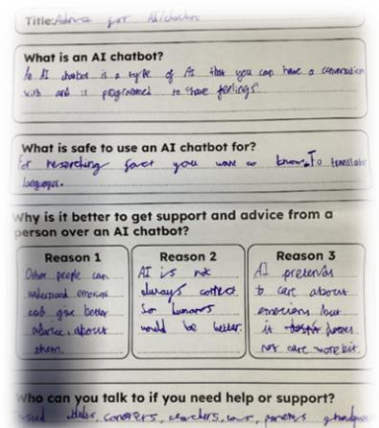 Title: Advice for AI chatbots
What is an AI chatbot?
An AI chatbot is a type of AI that you can have a conversation
with and it programmed to have feelings
What is safe to use an AI chatbot for?
For researching fact you want to know. To translate
languages.
Why is it better to get support and advice from a
person over an AI chatbot?
Reason 1
Other people can
understand emotions
and give better
advice about
them.
Reason 2
AI is not
always correct
So humans
would be better.
Reason 3
AI pretends
to care about
emotions but
it does
not care
Who can you talk to if you need help or support?
teachers, parents